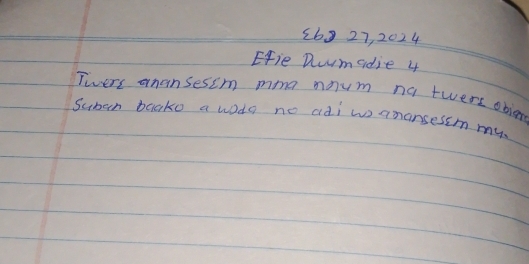 Ɛbɔ 27, 2024
Efie Dwumadie 4
Twerɛ anansesɛm mma nnum na twerɛ obiara
Suban baako a wɔda no adi wɔ anansesɛm mu.